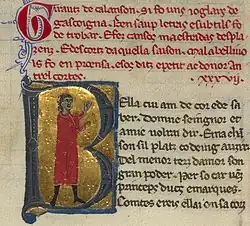 Giraut de calanson. si fo uns ioglars de
gascoigna. Ben saup letras. e subtils fo
de trobar. E fez cansos maestradas desplazenz.
E descortz daquella saison. Mal abelliuols
fo en proensa. e sos ditz e petit ac de nom an
trels cortes.
.xxxvii.
Bella cui am de cor e de sa
ber. Domne seignor et
amic uolrai dir. Em a chan
son sil platz codeing auzir
Del menor tertz damor son
gran poder. Per so car uenz
princeps ducs e marques.
Comtes e reis. e lai on sa cort